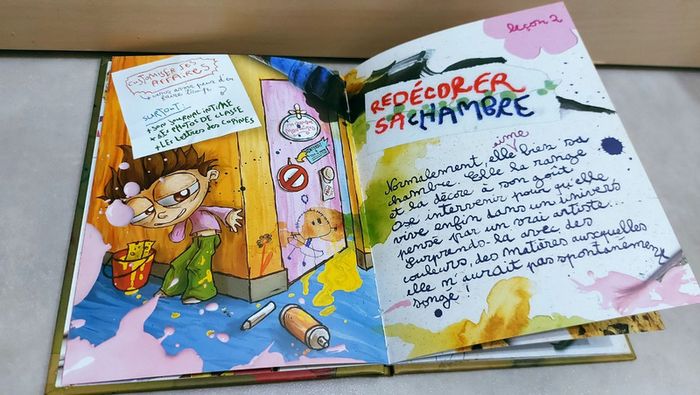 CUSTOMISER SES
AFFAIRES
SURTOUT :
+ SON JOURNAL INTIME
+ LES PHOTOS DE CLASSE
+ LES LETTRES DES COPINES
leçon 2
REDÉCORER
SA CHAMBRE
Normalement, elle aime bien sa
chambre. Elle la range
et la décore à son goût.
Ose intervenir pour qu'elle
vive enfin dans un univers
pensé par un vrai artiste...
Surprends-la avec des
couleurs, des matières auxquelles
elle n'aurait pas spontanément
songé !